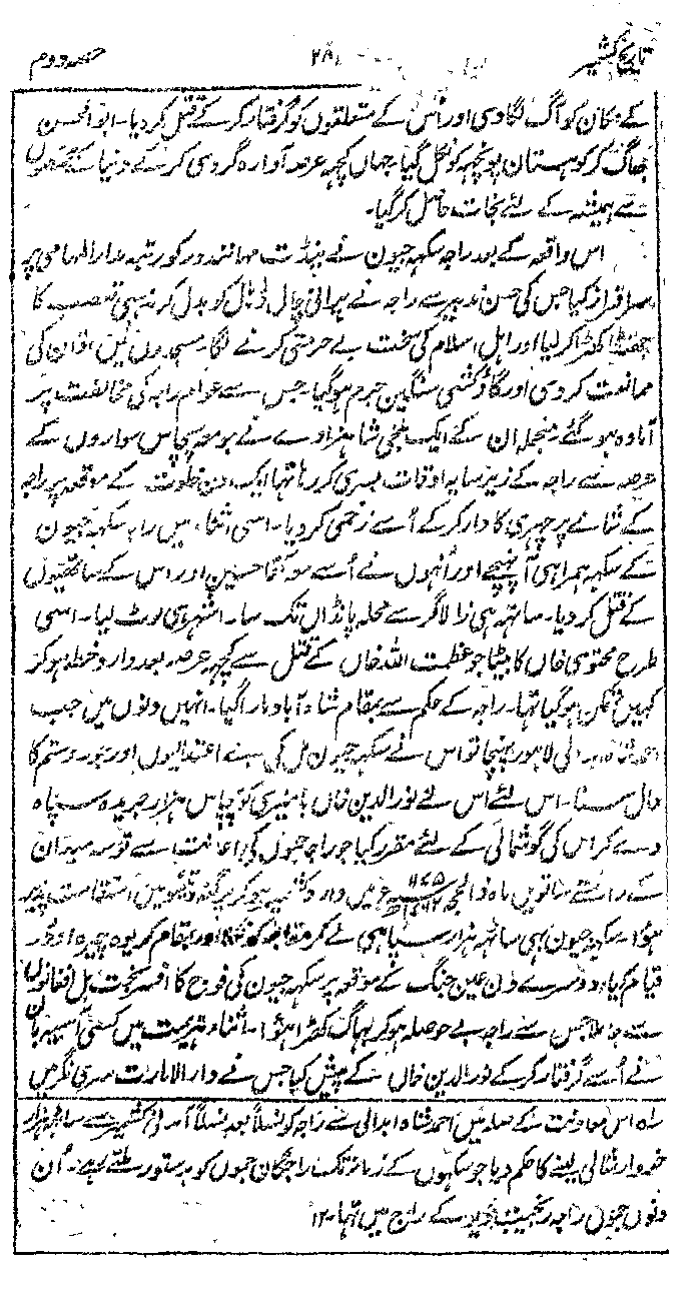 تاریخ کشمیر ۲۸ حصہ دوم
کے مکان کو آگ لگا دی اور اُس کے متعلقوں کو گرفتار کر کے قتل کر دیا۔ ابوالحسن
بھاگ کر کوہستان پونچھہ کو نکل گیا جہاں کچھہ عرصہ آوارہ گردی کر کے دنیا کے
سے ہمیشہ کے لئے نجات حاصل کر گیا۔
اس واقعہ کے بعد راجہ سکہہ جیون نے پنڈت مہانند در کو رتبہ مدارالمہامی پر
سرافراز کیا جس کی حسن تدبیر سے راجہ نے پرانی چال ڈھال کو بدل کر مذہبی تعصب کا
جھنڈا کھڑا کر لیا اور اہل اسلام کی سخت بے حرمتی کرنے لگا۔ مسجدوں میں اذان کی
ممانعت کر دی اور گاؤ کشی سنگین جرم ہو گیا۔ جس سے عوام راجہ کی مخالفت پر
آمادہ ہو گئے منجملہ ان کے ایک بلخی شاہزادے نے جو معہ پچاس سواروں کے
عرصہ سے راجہ کے زیر سایہ اوقات بسری کر رہا تہا ایک دن خلوت کے موقعہ پر راجہ
کے شانے پر چہری کا وار کر کے اُسے زخمی کر دیا۔ اسی اثناء میں راجہ سکہہ جیون
کے سکہہ ہمراہی آ پہنچے اور اُنہوں نے اُسے اور اس کے ساتھیوں
کے قتل کر دیا۔ ساتہہ ہی زالڈگر سے محلہ پانڈاں تک سارا شہر ہی لوٹ لیا۔ اسی
طرح محتوی خاں کا بیٹا جو عظمت اللہ خاں کے قتل سے کچہہ عرصہ بعد وارد خطہ ہو کر
کہیں متمکن ہو گیا تہا۔ راجہ کے حکم سے بمقام شاہ آباد مارا گیا۔ انہیں دنوں میں جب
احمد شاہ ابدالی لاہور پہنچا تو اس نے سکہہ جیون مل کی بے اعتدالیوں اور جور و ستم کا
حال سنا۔ اس لئے اس نے نورالدین خاں بامیزی کو پچاس ہزار جریدہ سپاہ
دے کر اس کی گوشمالی کے لئے مقرر کیا جو راجہ جموں کی اعانت سے توسہ میدان
کے راستے ساتویں ماہ ذوالحجہ میں وارد کشمیر ہو کر پرگنہ میں استقامت پذیر
ہوا۔ سکہہ جیون بھی ساٹھہ ہزار سپاہی لے کر مقابلہ کو نکلا اور بمقام
قیام کیا۔ دوسرے دن عین جنگ کے موقعہ پر سکہہ جیون کی فوج کا افسر بخت مل افغانوں
سے جا ملا جس سے راجہ بے حوصلہ ہو کر بہاگ کھڑا ہوا۔ اثناء ہزیمت میں کسی آسیہ بان
نے اُسے گرفتار کر کے نورالدین خاں کے پیش کیا جس نے دارالامارت سری نگر میں
راہ اس معاونت کے صلہ میں احمد شاہ ابدالی نے راجہ کو نسلاً بعد نسلاً آمدنی کشمیر سے ساٹھہ ہزار
خروار شالی لینے کا حکم دیا جو سکہوں کے زمانہ تک راجگان جموں کو بدستور ملتے رہے۔ اُن
دنوں جموں راجہ رنجیت دیو کے راج میں تہا۔ ۱۲